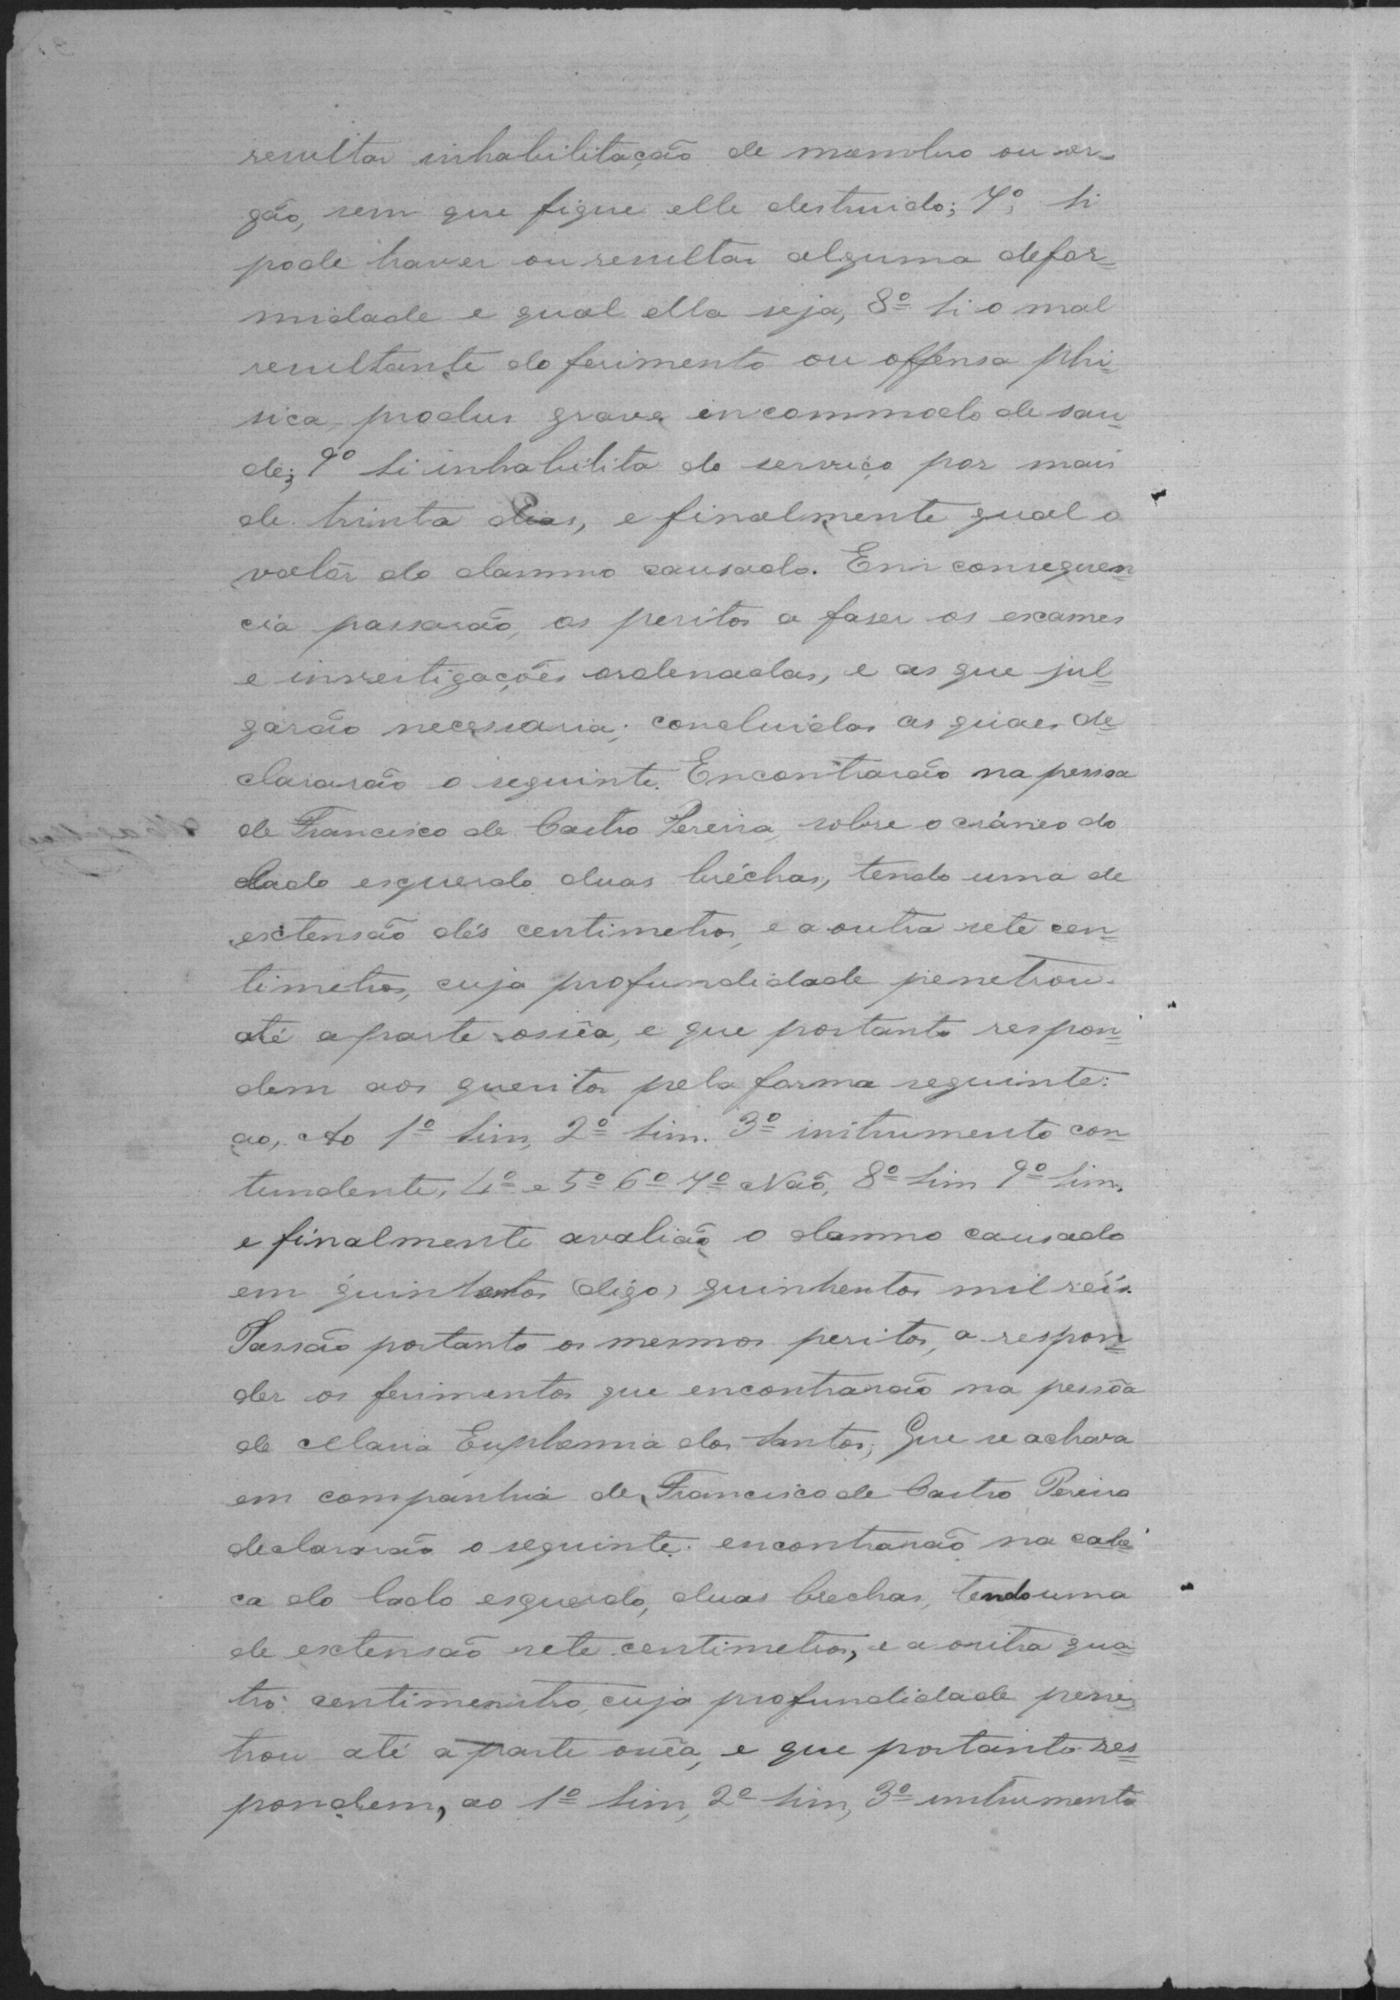 resultar inhabilitação de membro ou or-
gão, sem que fique elle destruido; 7º, si
pode haver ou resultar alguma defor-
midade e qual ella seja, 8º si o mal
resultante do ferimento ou offensa phi-
sica, produs grave incommodo de sau-
de; 9º si inhabilita do serviço por mais
de trinta dias, e finalmente qual o
valôr do damno causado. Em consequen-
cia passarão, os peritos a faser os exames
e investigações ordenadas, e as que jul-
garão necessaria; concluidas as quaes de-
clararão o seguinte. Encontrarão na pessoa
de Francisco de Castro Pereira, sobre o cráneo do
lado esquerdo duas bréchas, tendo uma de
extensão dés centimetros, e a outra sete cen-
timetros, cuja profundidade penetrou
até a parte ossêa, e que portanto respon-
dem aos quesitos pela forma seguinte:
ao, Ao 1º Sim, 2º Sim. 3º instrumento con-
tundente, 4º e 5º 6º 7º Não, 8º Sim 9º Sim,
e finalmente avalião o damno causado
em quinhentos digo, quinhentos mil réis.
Passão portanto os mesmos peritos, a respon-
der os ferimentos que encontrarão na pessôa
de Maria Euphemia dos Santos, Que se achava
em companhia de, Francisco de Castro Pereira
declararão o seguinte: encontrarão na cabe-
ca do lado esquerdo, duas brechas, tendo uma
de extensão sete centimetros, e a outra qua-
tro centimentro, cuja profundidade pene-
trou até a parte ossêa, e que portanto res-
pondem, ao 1º Sim, 2º Sim, 3º instrumento